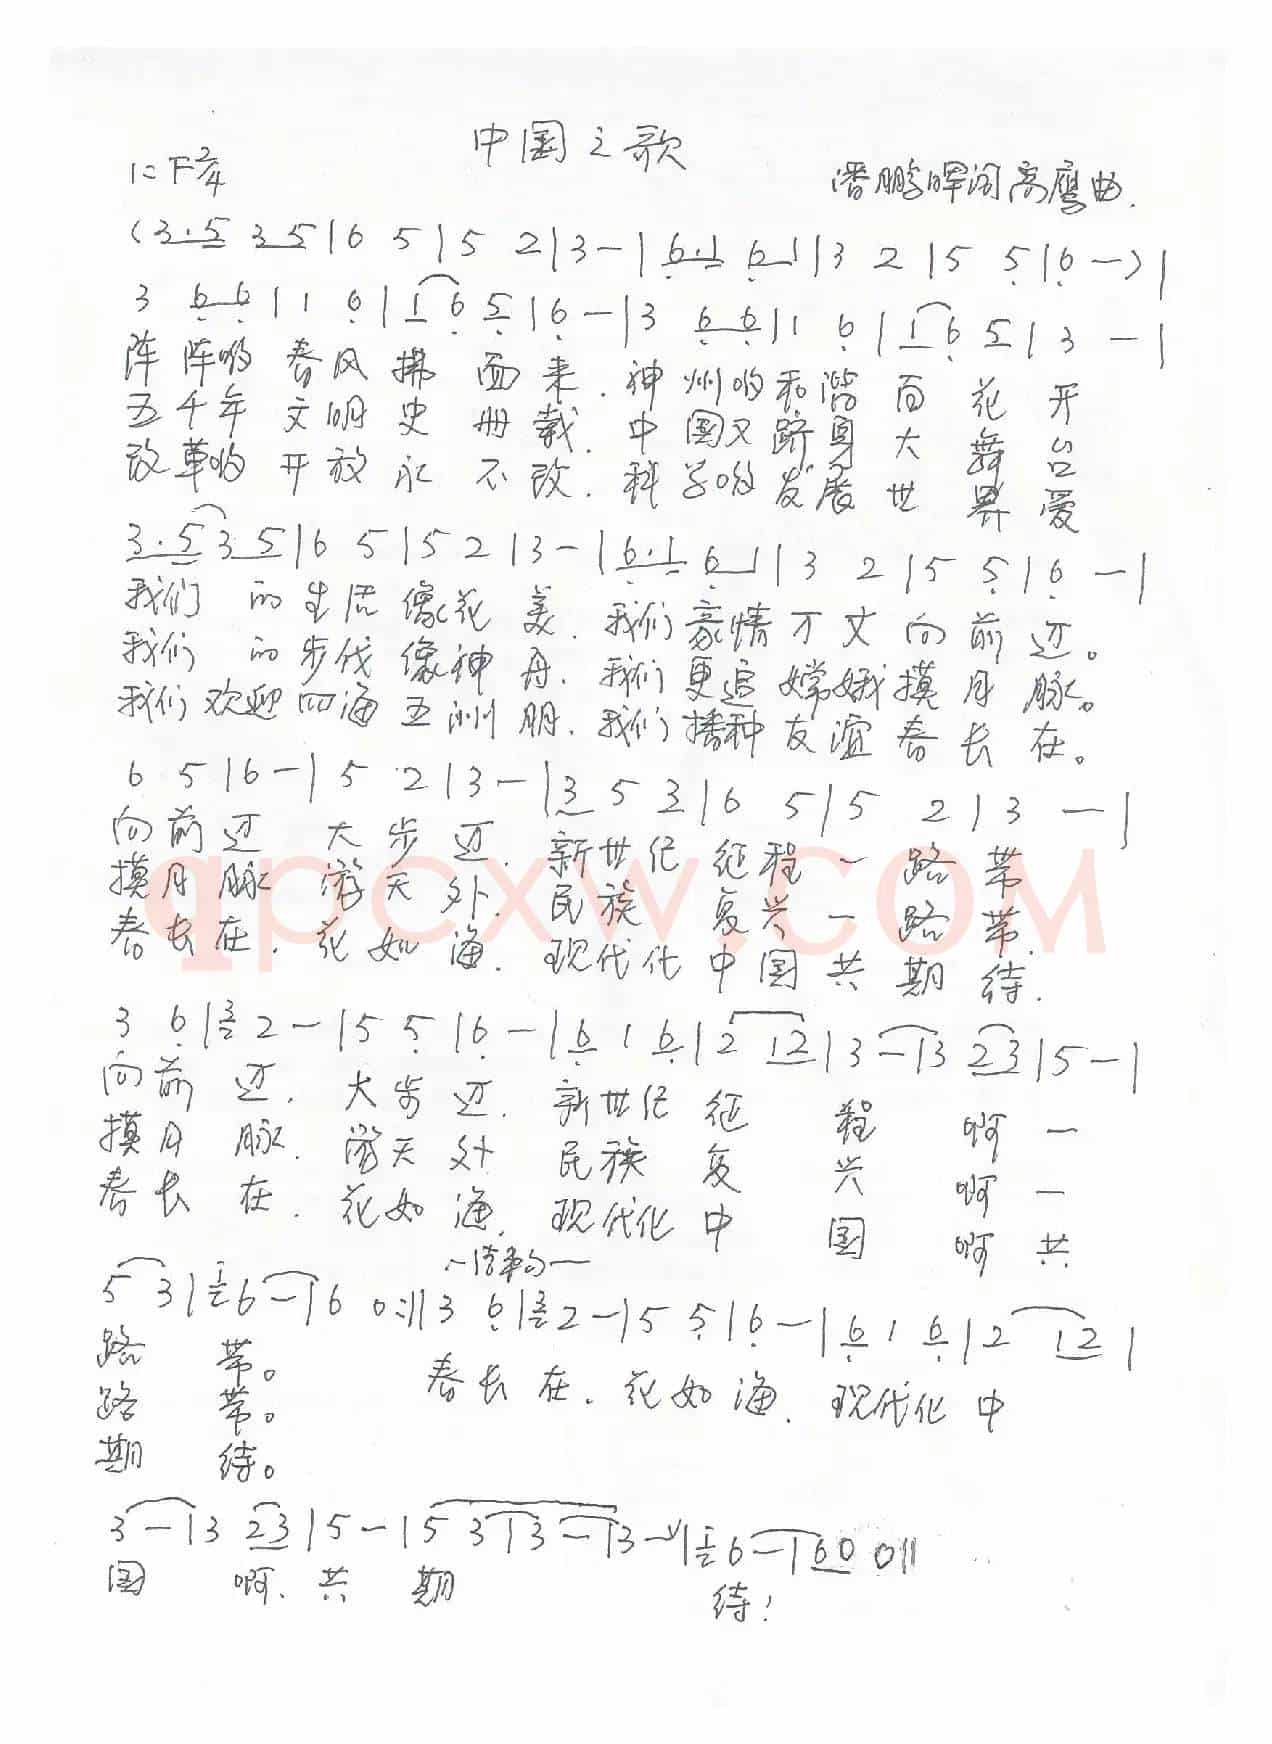 中国之歌
1=F 2/4
潘鹏晖词高鹰曲.
(3.5 3 5|6 5|5 2|3 —|6.1 6 1|3 2|5 5|6 —)|
3 6 6|1 6|1 6 5|6 —|3 6 6|1 6|1 6 5|3 —|
阵阵哟春风拂面来.神州哟和谐百花开
五千年文明史册载.中国又跻身大舞台
改革哟开放永不改.科学哟发展世界爱
3.5 3 5|6 5|5 2|3 —|6.1 6 1|3 2|5 5|6 —|
我们的生活像花美.我们豪情万丈向前迈。
我们的步伐像神舟.我们更追嫦娥摸月脉。
我们欢迎四海五洲朋.我们播种友谊春长在。
6 5|6 —|5 2|3 —|3 5 3|6 5|5 2|3 —|
向前迈 大步迈.新世纪征程一路带
摸月脉 游天外.民族复兴一路带.
春长在.花如海.现代化中国共期待.
qpcxw.com
3 6|3 2 —|5 5|6 —|6 1 6|2 1 2|3 —|3 2 3|5 —|
向前迈.大步迈.新世纪征程啊一
摸月脉.游天外 民族复兴啊一
春长在.花如海.现代化中国啊共
—结束句—
5 3|1 6 —|6 0:||3 6|3 2 —|5 5|6 —|6 1 6|2 1 2|
路带。 春长在.花如海.现代化中
路带。
期待。
3 —|3 2 3|5 —|5 3|3 —|3 —|1 6 —|6 0 0||
国啊.共期待!